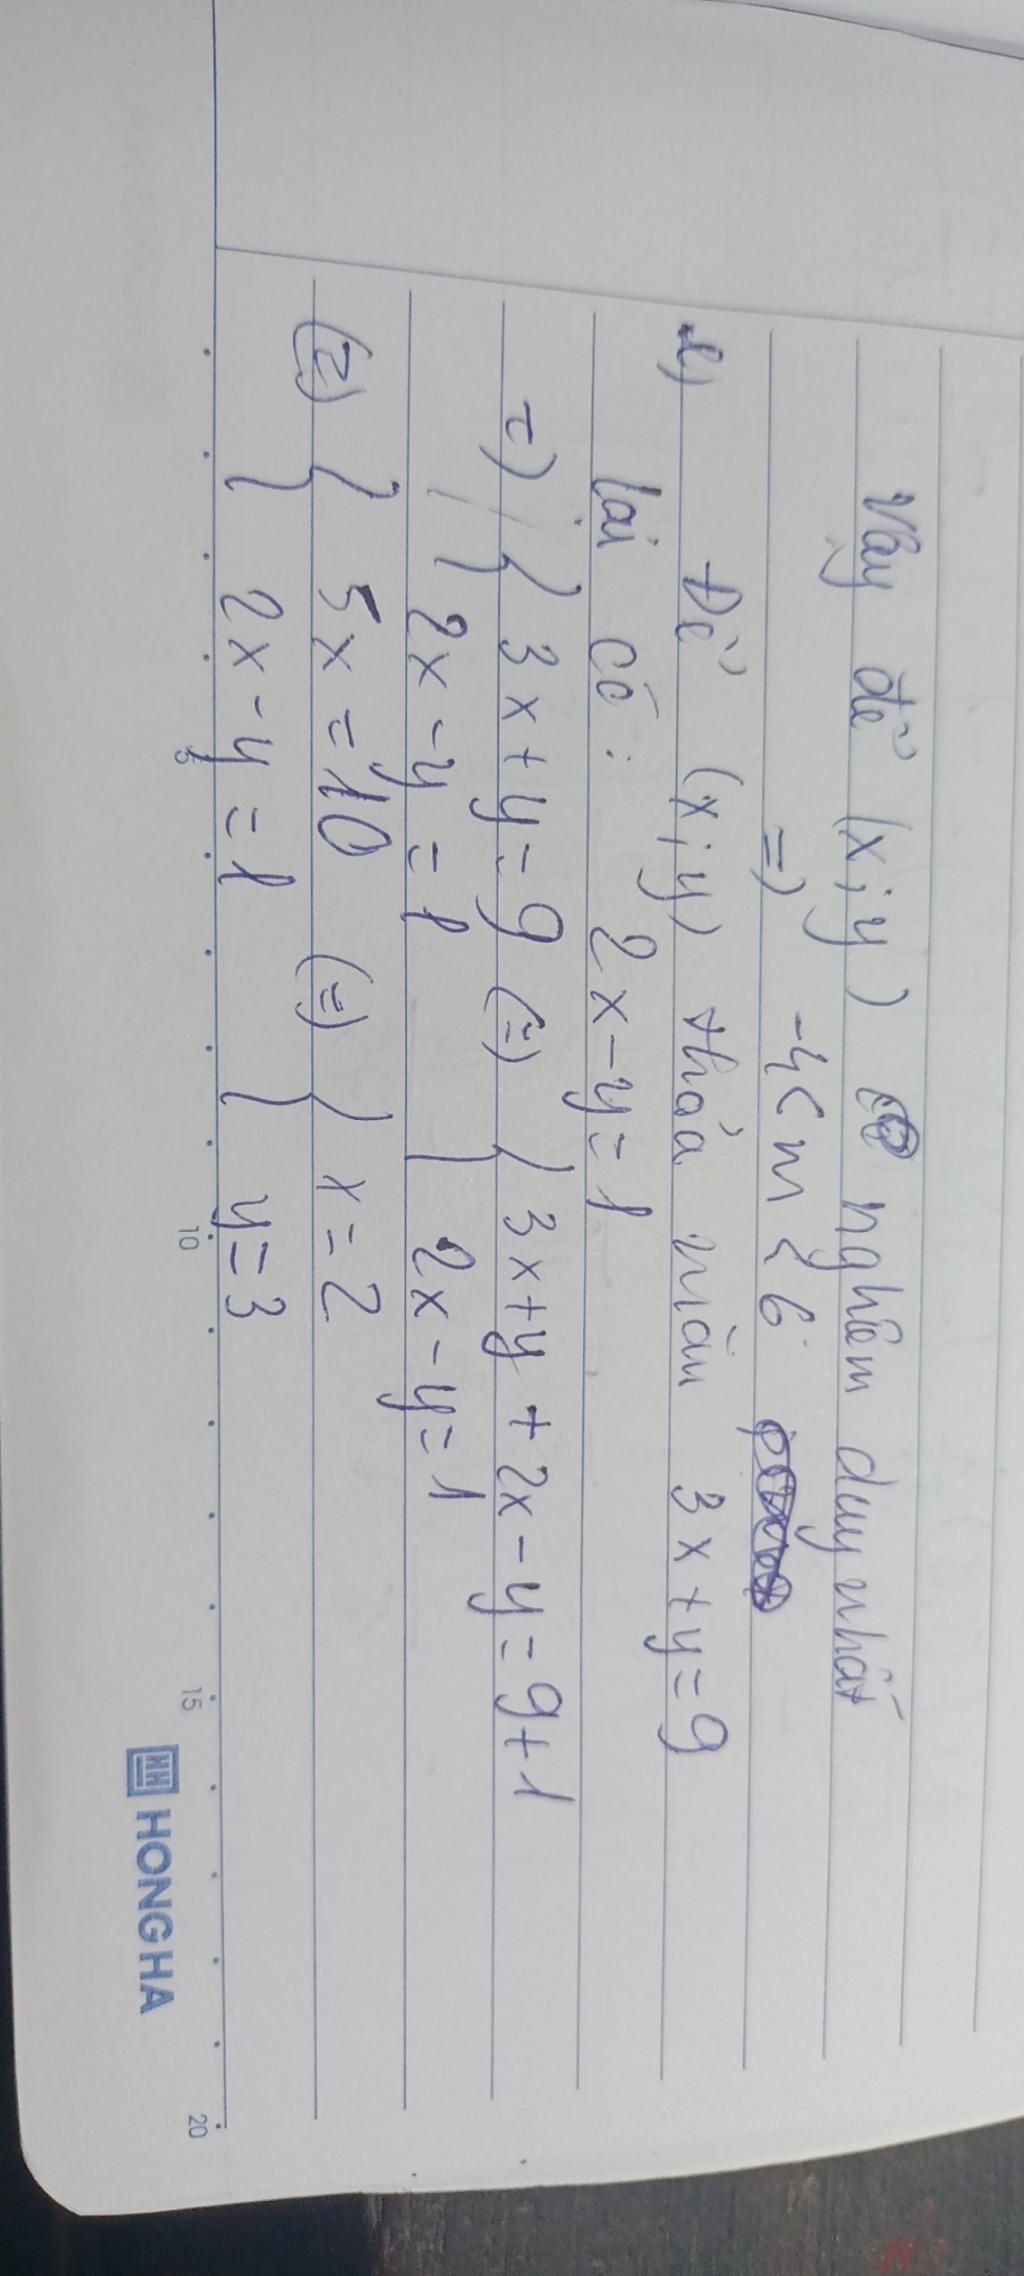 Vậy để (x;y) có nghiệm duy nhất
=) -4 < m < 6
e) Để (x;y) thỏa mãn 3x+y=9
lại có: 2x-y=1
=) { 3x+y=9 (=) { 3x+y+2x-y=9+1
2x-y=1 2x-y=1
(=) { 5x=10 (=) { x=2
2x-y=1 y=3
5 10 15 20
HONG HA